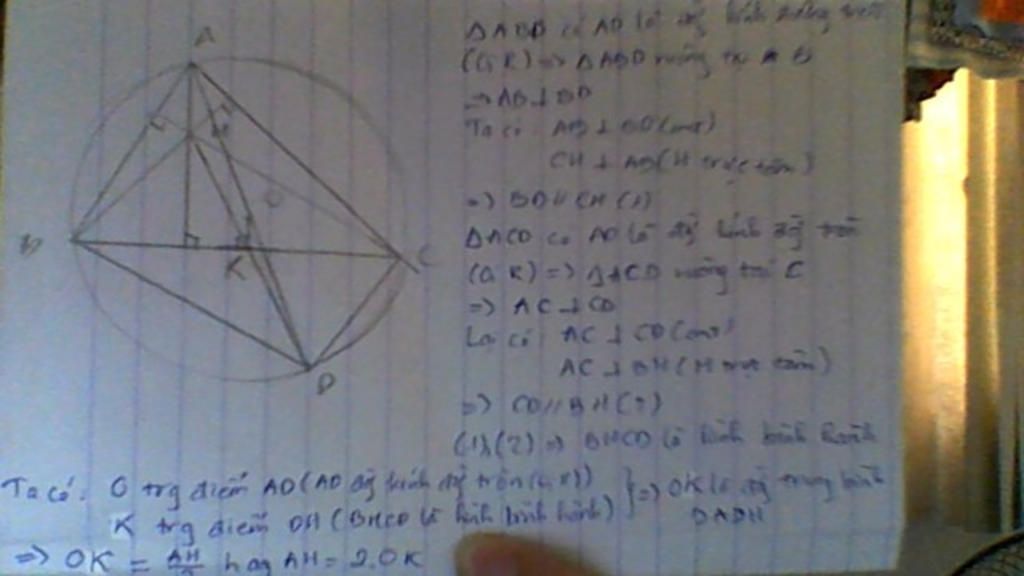 A
H
O
B
K
C
D
ΔABD có AD là đg kính đường tròn
(O,R) => ΔABD vuông tại B
=> AB ⊥ BD
Ta có: AB ⊥ BD (cmt)
CH ⊥ AB (H trực tâm)
=> BD // CH (1)
ΔACD có AD là đg kính đg tròn
(O,R) => ΔACD vuông tại C
=> AC ⊥ CD
Lại có: AC ⊥ CD (cmt)
AC ⊥ BH (H trực tâm)
=> CD // BH (2)
(1),(2) => BHCD là hình bình hành
Ta có: O trg điểm AD (AD đg kính đg tròn (O,R))
K trg điểm DH (BHCD là hình bình hành)
} => OK là đg trung bình
ΔADH
=> OK = AH/2 hay AH = 2.OK